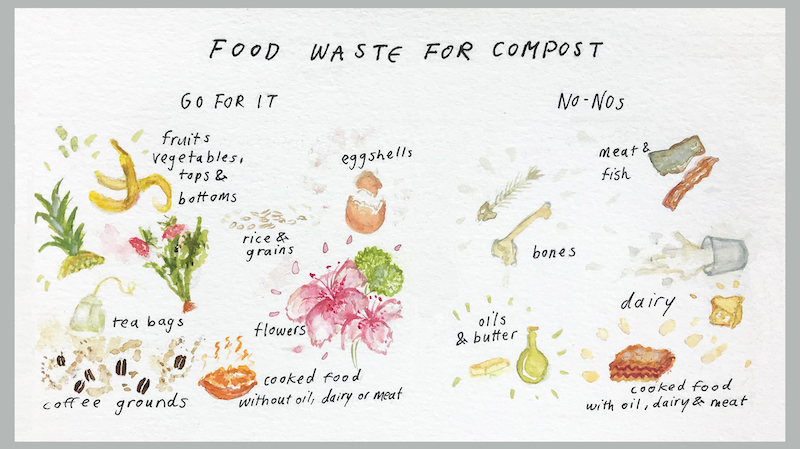 FOOD WASTE FOR COMPOST
GO FOR IT
fruits
vegetables,
tops &
bottoms
eggshells
rice &
grains
tea bags
flowers
coffee grounds
cooked food
without oil, dairy or meat
NO-NOS
meat &
fish
bones
dairy
oils
& butter
cooked food
with oil, dairy & meat